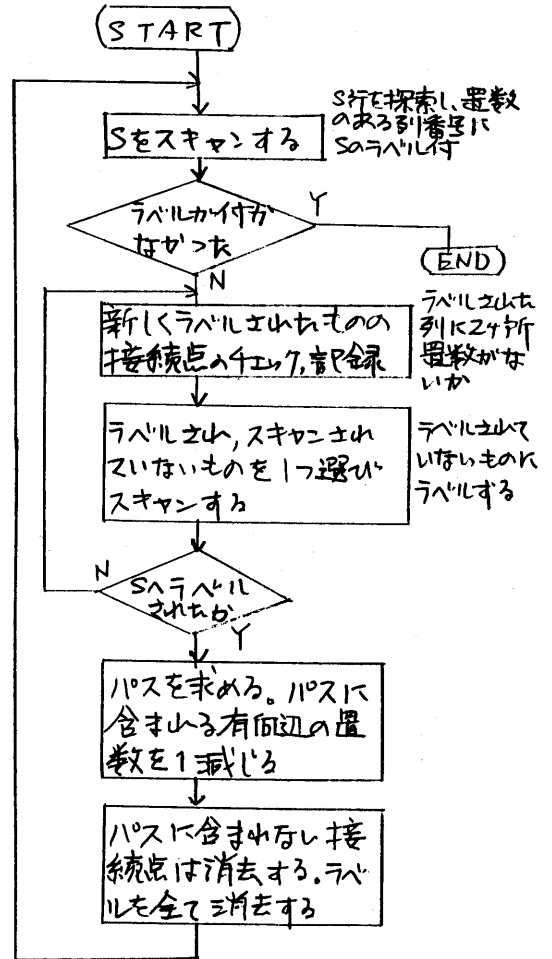 START
S行を探索し、置数
のある列番号に
Sのラベル付
Sをスキャンする
ラベルが付か
なかった
Y
N
END
新しくラベルされたものの
接続点のチェック,記録
ラベルされた
列に2ヶ所
置数がな
いか
ラベルされ,スキャンされ
ていないものを1つ選び
スキャンする
ラベルされて
いないものに
ラベルする
N
Sへラベル
されたか
Y
パスを求める。パスに
含まれる有向辺の置
数を1減じる
パスに含まれない接
続点は消去する。ラベ
ルを全て消去する